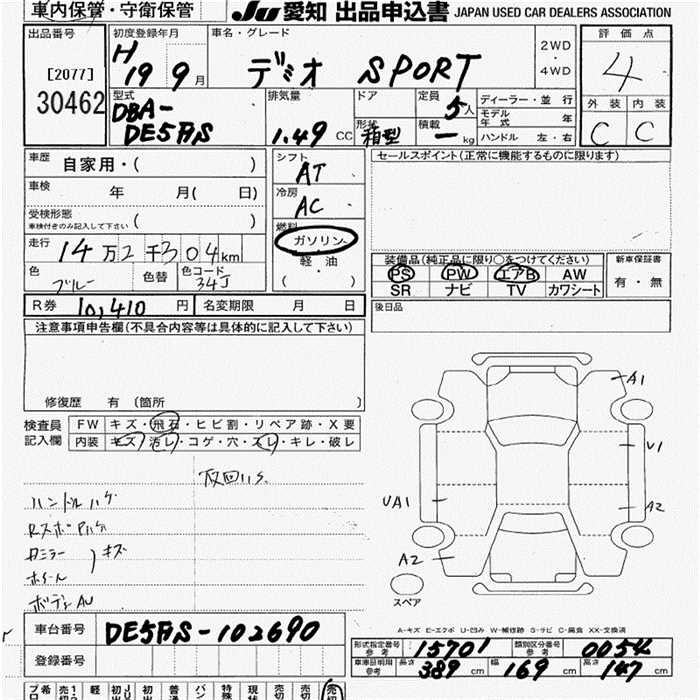 車内保管・守衛保管
JU 愛知 出品申込書 JAPAN USED CAR DEALERS ASSOCIATION
出品番号
[2077]
30462
初度登録年月
H 19 9月
車名・グレード
デミオ SPORT
2WD
・
4WD
評価点
4
外装 内装
C C
型式
DBA-
DE5FS
排気量
1.49 CC
ドア
形状
箱型
定員
5人
積載
ー kg
ディーラー・並 行
モデル年式 年
ハンドル 左・右
車歴 自家用・( )
車検 年 月( 日)
受検形態
車検付きのみ記入して下さい ( )
走行 14万2千304km
色 ブルー 色替 色コード 34J
R券 10,410 円 名変期限 月 日
シフト
AT
冷房
AC
燃料
ガソリン
・
軽・油
( )
セールスポイント(正常に機能するものに限ります)
装備品(純正品に限り○をつけてください)
PS PW エアB AW
SR ナビ TV カワシート
新車保証書
有・無
後日品
注意事項申告欄(不具合内容等は具体的に記入して下さい)
修復歴 有 (箇所 )
検査員
記入欄
FW キズ・飛石・ヒビ割・リペア跡・X要
内装 キズ・汚レ・コゲ・穴・スレ・キレ・破レ
ハンドルハゲ
ミラー
キズ
A1
U1
UA1
A2
A2
スペア
A-キズ E-エクボ U-凹み W-補修跡 S-サビ C-腐食 XX-交換済
車台番号 DE5FS-102690
登録番号
形式指定番号 参考 15701 類別区分番号 参考 0054
車庫証明用 参考 長さ 389 cm 幅 169 cm 高さ 147 cm